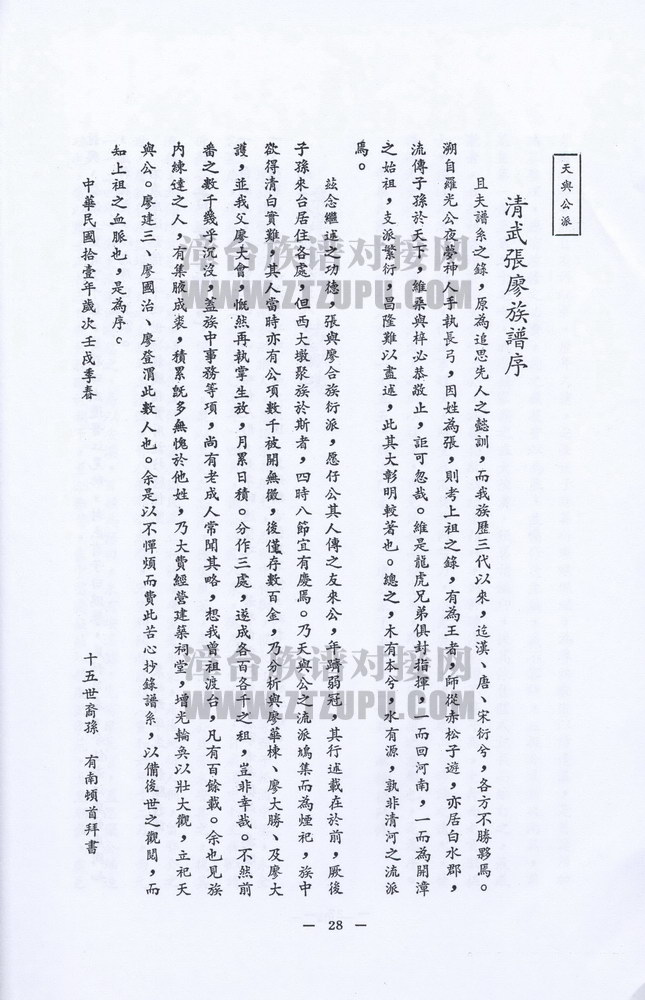 天與公派
清武張廖族譜序
且夫譜系之錄，原為追思先人之懿訓，而我族歷三代以來，迄漢、唐、宋衍兮，各方不勝夥焉。
溯自羅光公夜夢神人手執長弓，因姓為張，則考上祖之錄，有為王者，師從赤松子遊，亦居白水郡，
流傳子孫於天下，維桑與梓必恭敬止，詎可忽哉。維是龍虎兄弟俱封指揮，一而回河南，一而為開漳
之始祖，支派繁衍，昌隆難以盡述，此其大彰明較著也。總之，木有本兮，水有源，孰非清河之流派
焉。
茲念繼述之功德，張與廖合族衍派，愿仔公其人傳之友來公，年躋弱冠，其行述載在於前，厥後
子孫來台居住各處，但西大墩聚族於斯者，四時八節宜有慶焉。乃天與公之流派鳩集而為煙祀，族中
欲得清白實難，其人當時亦有公項數千被開無微，後僅存數百金，乃分析與廖華棟、廖大勝、及廖大
護，並我父廖大會，慨然再執掌生放，月累日積。分作三處，遂成各百各千之祖，豈非幸哉。不然前
番之數千幾乎沉沒，蓋族中事務等項，尚有老成人常聞其略，想我曾祖渡台，凡有百餘載。余也見族
內練達之人，有集腋成裘，積累既多無愧於他姓，乃大費經營建築祠堂，增光輪奐以壯大觀，立祀天
與公。廖建三、廖國治、廖登渭此數人也。余是以不憚煩而費此苦心抄錄譜系，以備後世之觀閱，而
知上祖之血脈也，是為序。
中華民國拾壹年歲次壬戌季春
十五世裔孫 有南頓首拜書
— 28 —
漳台族谱对接网
WWW.ZTZUPU.COM
漳台族谱对接网
WWW.ZTZUPU.COM